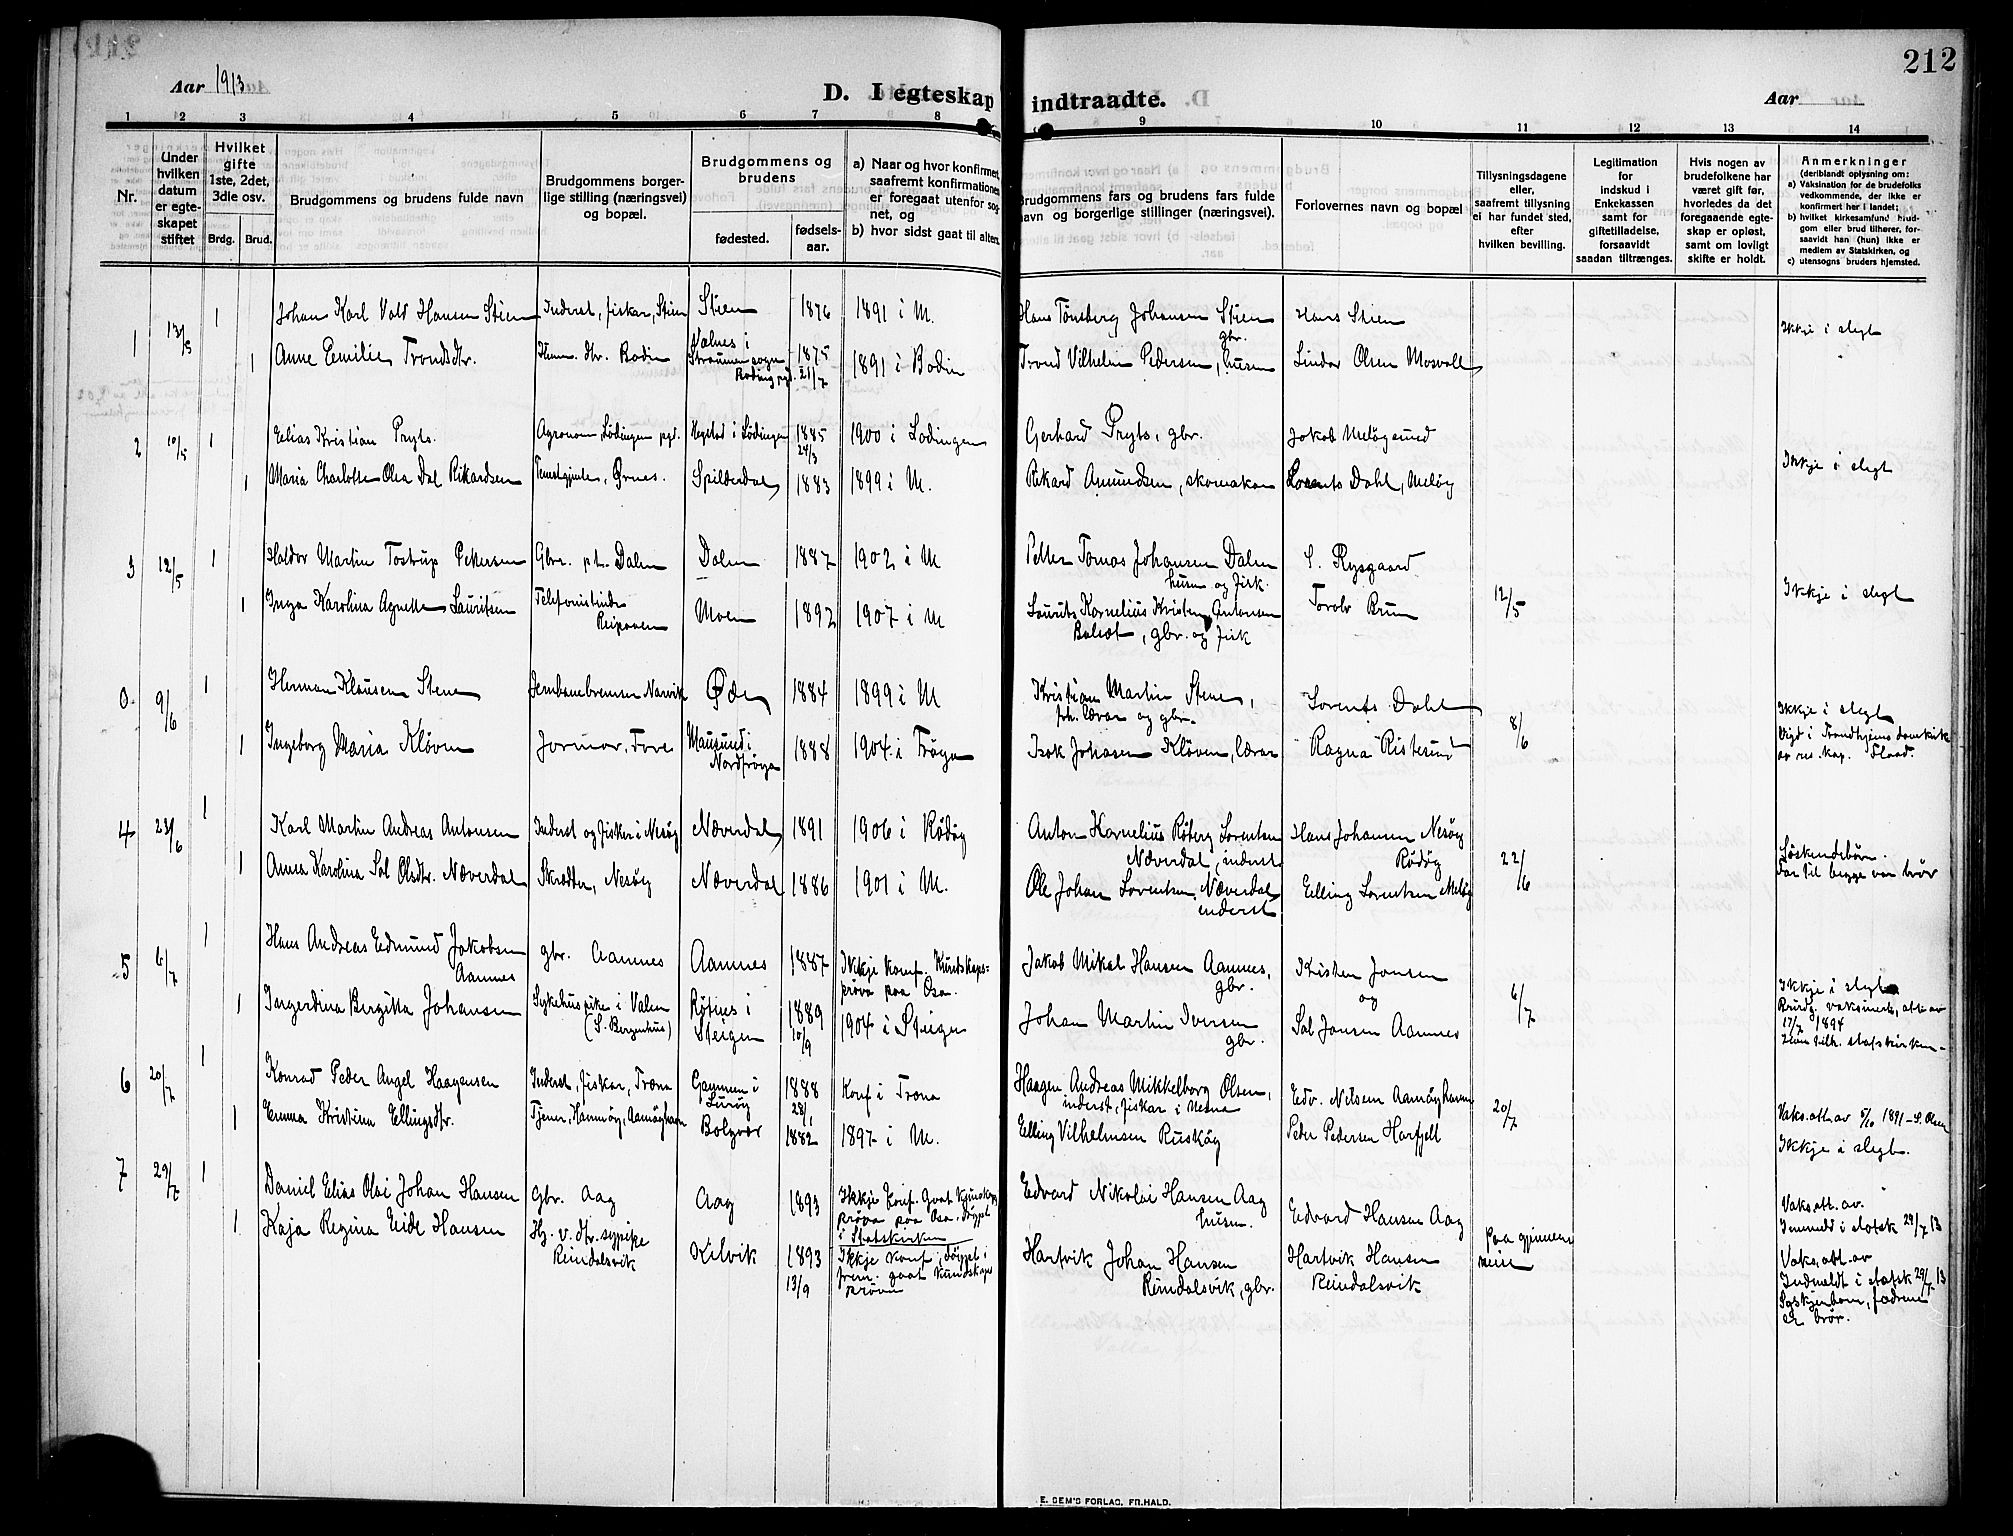 212
Aar 1913
D. I egteskap indtraadte.
Aar
1 2 3 4 5 6 7 8 9 10 11 12 13 14
Nr.
Under hvilken datum er egteskapet stiftet
Hvilket gifte 1ste, 2det, 3die osv.
Brdg. Brud.
Brudgommens og brudens fulde navn
Brudgommens borgerlige stilling (næringsvei) og bopæl.
Brudgommens og brudens
fødested.
fødselsaar.
a) Naar og hvor konfirmert, saafremt konfirmationen er foregaat utenfor sognet, og
b) hvor sidst gaat til alters.
Brudgommens fars og brudens fars fulde navn og borgerlige stillinger (næringsvei).
Forlovernes navn og bopæl
Tillysningsdagene eller, saafremt tillysning ei har fundet sted, efter hvilken bevilling.
Legitimation for indskud i Enkekassen samt for giftetilladelse, forsaavidt saadan tiltrænges.
Hvis nogen av brudefolkene har været gift før, hvorledes da det foregaaende egteskap er opløst, samt om lovligt skifte er holdt.
Anmerkninger (deriblandt oplysning om:
a) Vaksination for de brudefolks vedkommende, der ikke er konfirmert her i landet;
b) hvilket kirkesamfund brudgom eller brud tilhører, forsaavidt han (hun) ikke er medlem av Statskirken, og
c) utensogns bruders hjemsted.
1 13/5 1 Johan Karl Vald Hansen Stien Inderst, fiskar, Stien Stien 1876 1891 i M. Hans Tönsberg Johansen Stien gbr. Hans Stien Ikkje i slegt
1 Anne Emilie Trondsdtr. Hum. dtr. Bodin Valnes i Straumen sogn Bodin pgd. 1875 21/7 1891 i Bodin Trond Vilhelm Pedersen, husm Lindor Olsen Mosvoll
2 10/5 1 Elias Kristian Pryts. Agronom, Lödingen pgd. Hegstad i Lödingen 1885 24/3 1900 i Lödingen Gerhard Pryts, gbr. Jakob Meløysund
1 Maria Charlotte Olea Dal Rikardsen Tenestgjente, Ørnes. Spilderdal 1883 1899 i M. Rikard Amundsen, skomakar Lorents Dahl, Meløy Ikkje i slegt
3 12/5 1 Haldor Martin Tostrup Pettersen Gbr. pt. Dalen Dalen 1887 1902 i M Petter Tomas Johansen Dalen husm og fisk. S. Rysgaard
1 Inga Karolina Agnette Lauritsen Telefonistinde Reipaaen Moen 1892 1907 i M Laurits Kornelius Kristen Antonsen Bolset, gbr. og fisk Torolv Brun 12/5 Ikkje i slegt
0. 9/6 1 Herman Klausen Stene Jernbanebremser Narvik Øde 1884 1899 i M Kristian Martin Stene, fh. lærar og gbr. Lorents Dahl
1 Ingeborg Maria Kløven Jormor, Fore Mausund i Nordfrøya 1888 1904 i Frøya Isak Johasen Kløven, lærar Ragna Ristesund 8/6 Ikkje i slegt Vigd i Trondhjems domkirk av res. kap. Flood.
4 23/6 1 Karl Martin Andreas Antonsen Inderst og fisker i Nesøy Næverdal 1891 1906 i Rødøy Anton Kornelius Röberg Lorentsen Næverdal, inderst Hans Johansen Nesöy Rödöy
1 Anna Karolina Sol Olsdtr. Næverdal Skrædder, Nesøy Næverdal 1886 1901 i M. Ole Johan Lorentsen Næverdal inderst Elling Lorentsen Meløy 22/6 Söskendebörn. Far til begge var brör
5 6/7 1 Hans Andreas Edmund Jakobsen Aamnes gbr. Aamnes Aamnes 1887 Ikkje konf. Kundskapsprøva paa Osa. Jakob Mikal Hansen Aamnes, gbr. Kristen Jonsen og
1 Ingerdina Bergitta Johansen Sykehuspike i Valen (S. Bergenhus) Røtnes i Steigen 1889 10/9 1904 i Steigen Johan Martin Iversen gbr. Sal Jonsen Aamnes 6/7 Ikkje i slegt Brudg. vaksinert, att. av 17/7 1894
6 20/7 1 Konrad Peder Angel Haagensen Inderst, fiskar, Træna Gammen i Lurøy 1888 28/1 Konf i Træna Haagen Andreas Mikkelborg Olsen, inderst, fiskar i Nesna Edv. Nilsen Aamøyhavn
1 Emma Kristina Ellingsdtr. Tjener, Hammøy, Aamøyhavn Bolgvær 1882 1897 i M. Elling Vilhelmsen Buskøy Peder Pedersen Harfjell 20/7 Vaks. att. av 5/10 1891 - S. Olsen Ikkje i slegt.
7 29/7 1 Daniel Elias Olai Johan Hansen gbr. Aag Aag 1893 Ikkje konf. Gaat kjunskapsprøva paa Osa. Døypt i Statskirken Edvard Nikolai Hansen Aag husm. Edvard Hansen Aag Vaks. att. av. Innmeld i statsk 29/7 13
1 Kaja Regina Eide Hansen Hj. v. dtr. sypike Reindalsvik Kilvik 1893 13/9 Ikkje konf, döypt i frem. gaat kundskapsprøven Hartvik Johan Hansen Reindalsvik, gbr. Hartvik Hansen Reindalsvik Paa gjennem Vaks. att. av Indmeldt i statsk 29/7 13 Syskjenborn, fedrene er brør.
E. SEM'S FORLAG, FR.HALD.